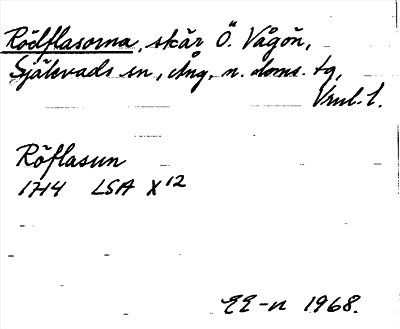 Rödflasorna, skär Ö. Vågön,
Själevads sn, Ång. n. doms. tg,
Vrul. l.
Röflasun
1714 LSA X12
EE-n 1968.